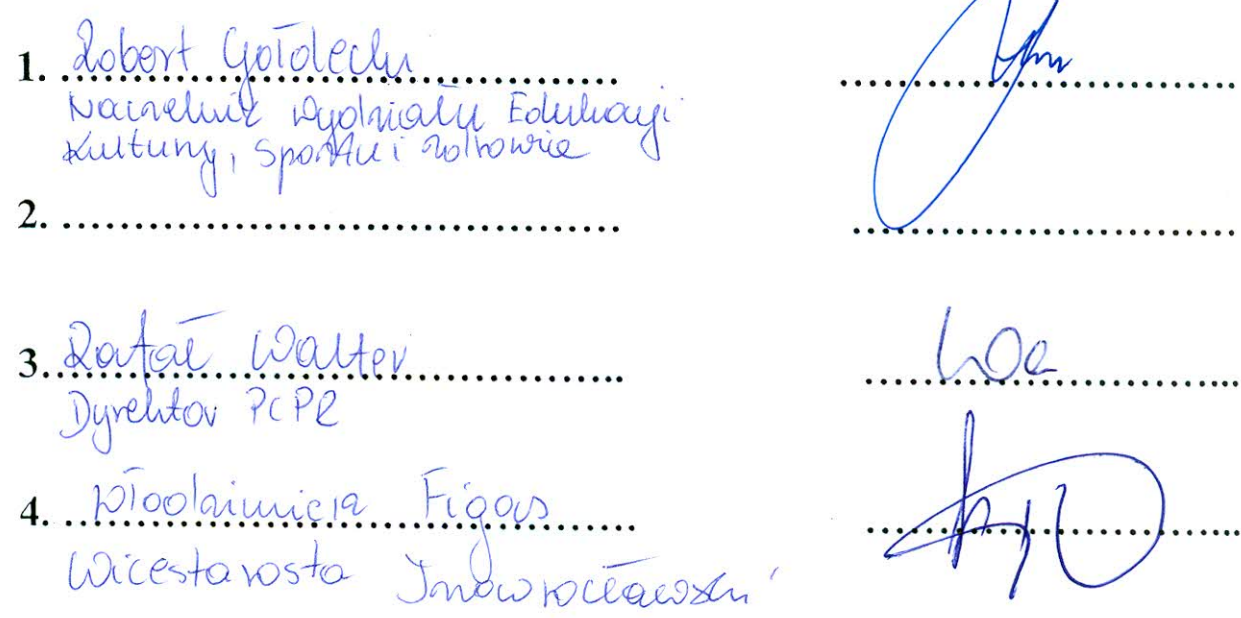 1. Robert Gołdecki
Naczelnik Wydziału Edukacji
Kultury, Sportu i Zdrowia
2.
3. Rafał Walter
Dyrektor PCPR
4. Włodzimierz Figas
Wicestarosta Inowrocławski